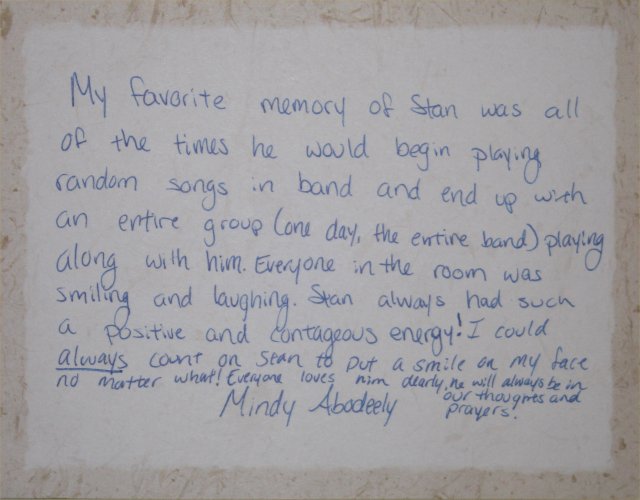 My favorite memory of Stan was all
of the times he would begin playing
random songs in band and end up with
an entire group (one day, the entire band) playing
along with him. Everyone in the room was
smiling and laughing. Stan always had such
a positive and contageous energy! I could
always count on Stan to put a smile on my face
no matter what! Everyone loves him dearly, he will always be in
our thoughts and
prayers.
Mindy Abodeely